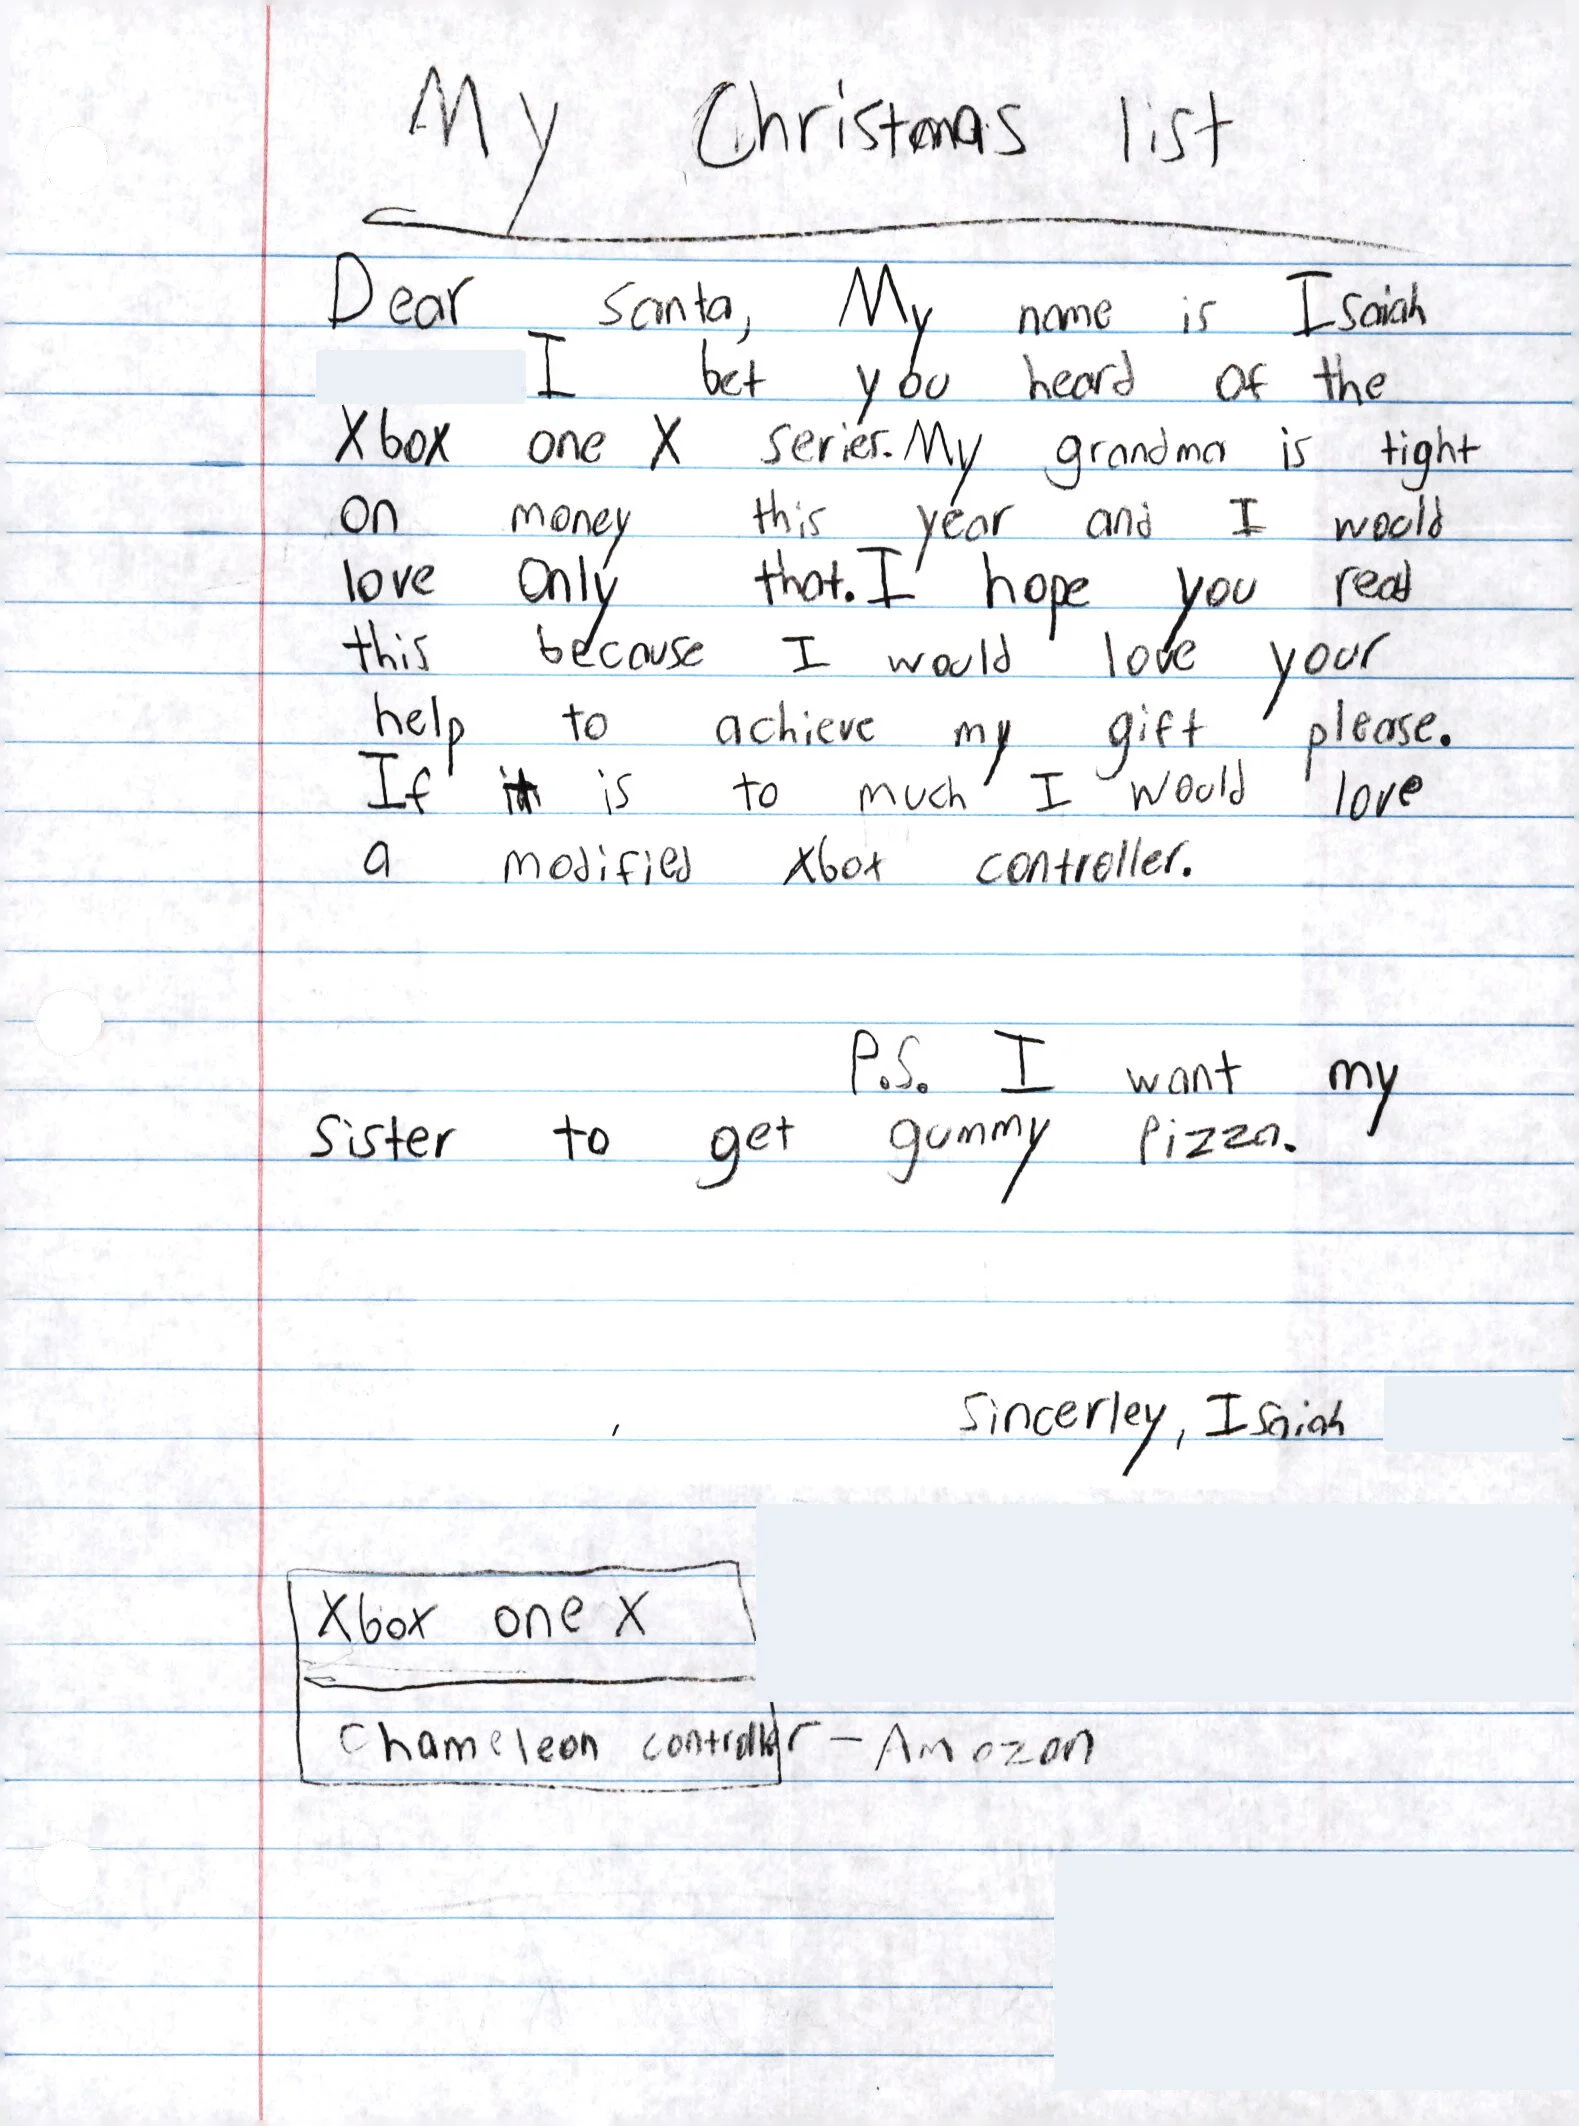 My Christmas list
Dear Santa, My name is Isaiah
I bet you heard of the
Xbox one X series. My grandma is tight
on money this year and I would
love only that. I hope you read
this because I would love your
help to achieve my gift please.
If it is to much I would love
a modified xbox controller.
P.S. I want my
sister to get gummy pizza.
Sincerley, Isaiah
Xbox one X
Chameleon controller - Amazon